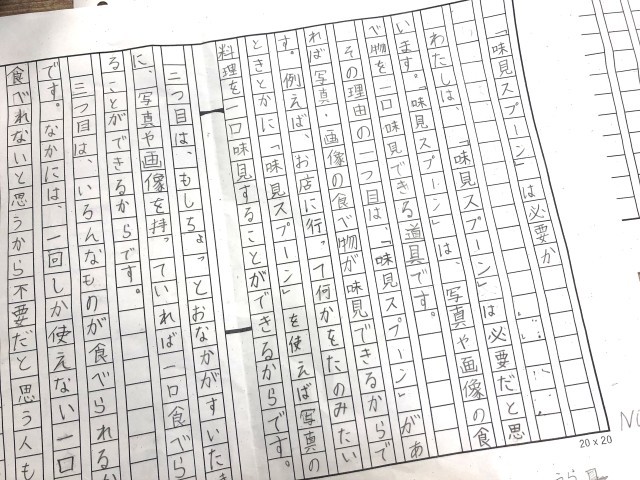 「味見スプーン」は必要か
わたしは、「味見スプーン」は必要だと思
います。「味見スプーン」は、写真や画像の食
べ物を一口味見できる道具です。
その理由の一つ目は、「味見スプーン」があ
れば写真・画像の食べ物が味見できるからで
す。例えば、お店に行って何かをたのみたい
ときとかに「味見スプーン」を使えば写真の
料理を一口味見することができるからです。
二つ目は、もしちょっとおなかがすいた
に、写真や画像を持っていれば一口食べら
ることができるからです。
三つ目は、いろんなものが食べられるか
です。なかには、一回しか使えない一口
食べれないと思うから不要だと思う人も
20×20